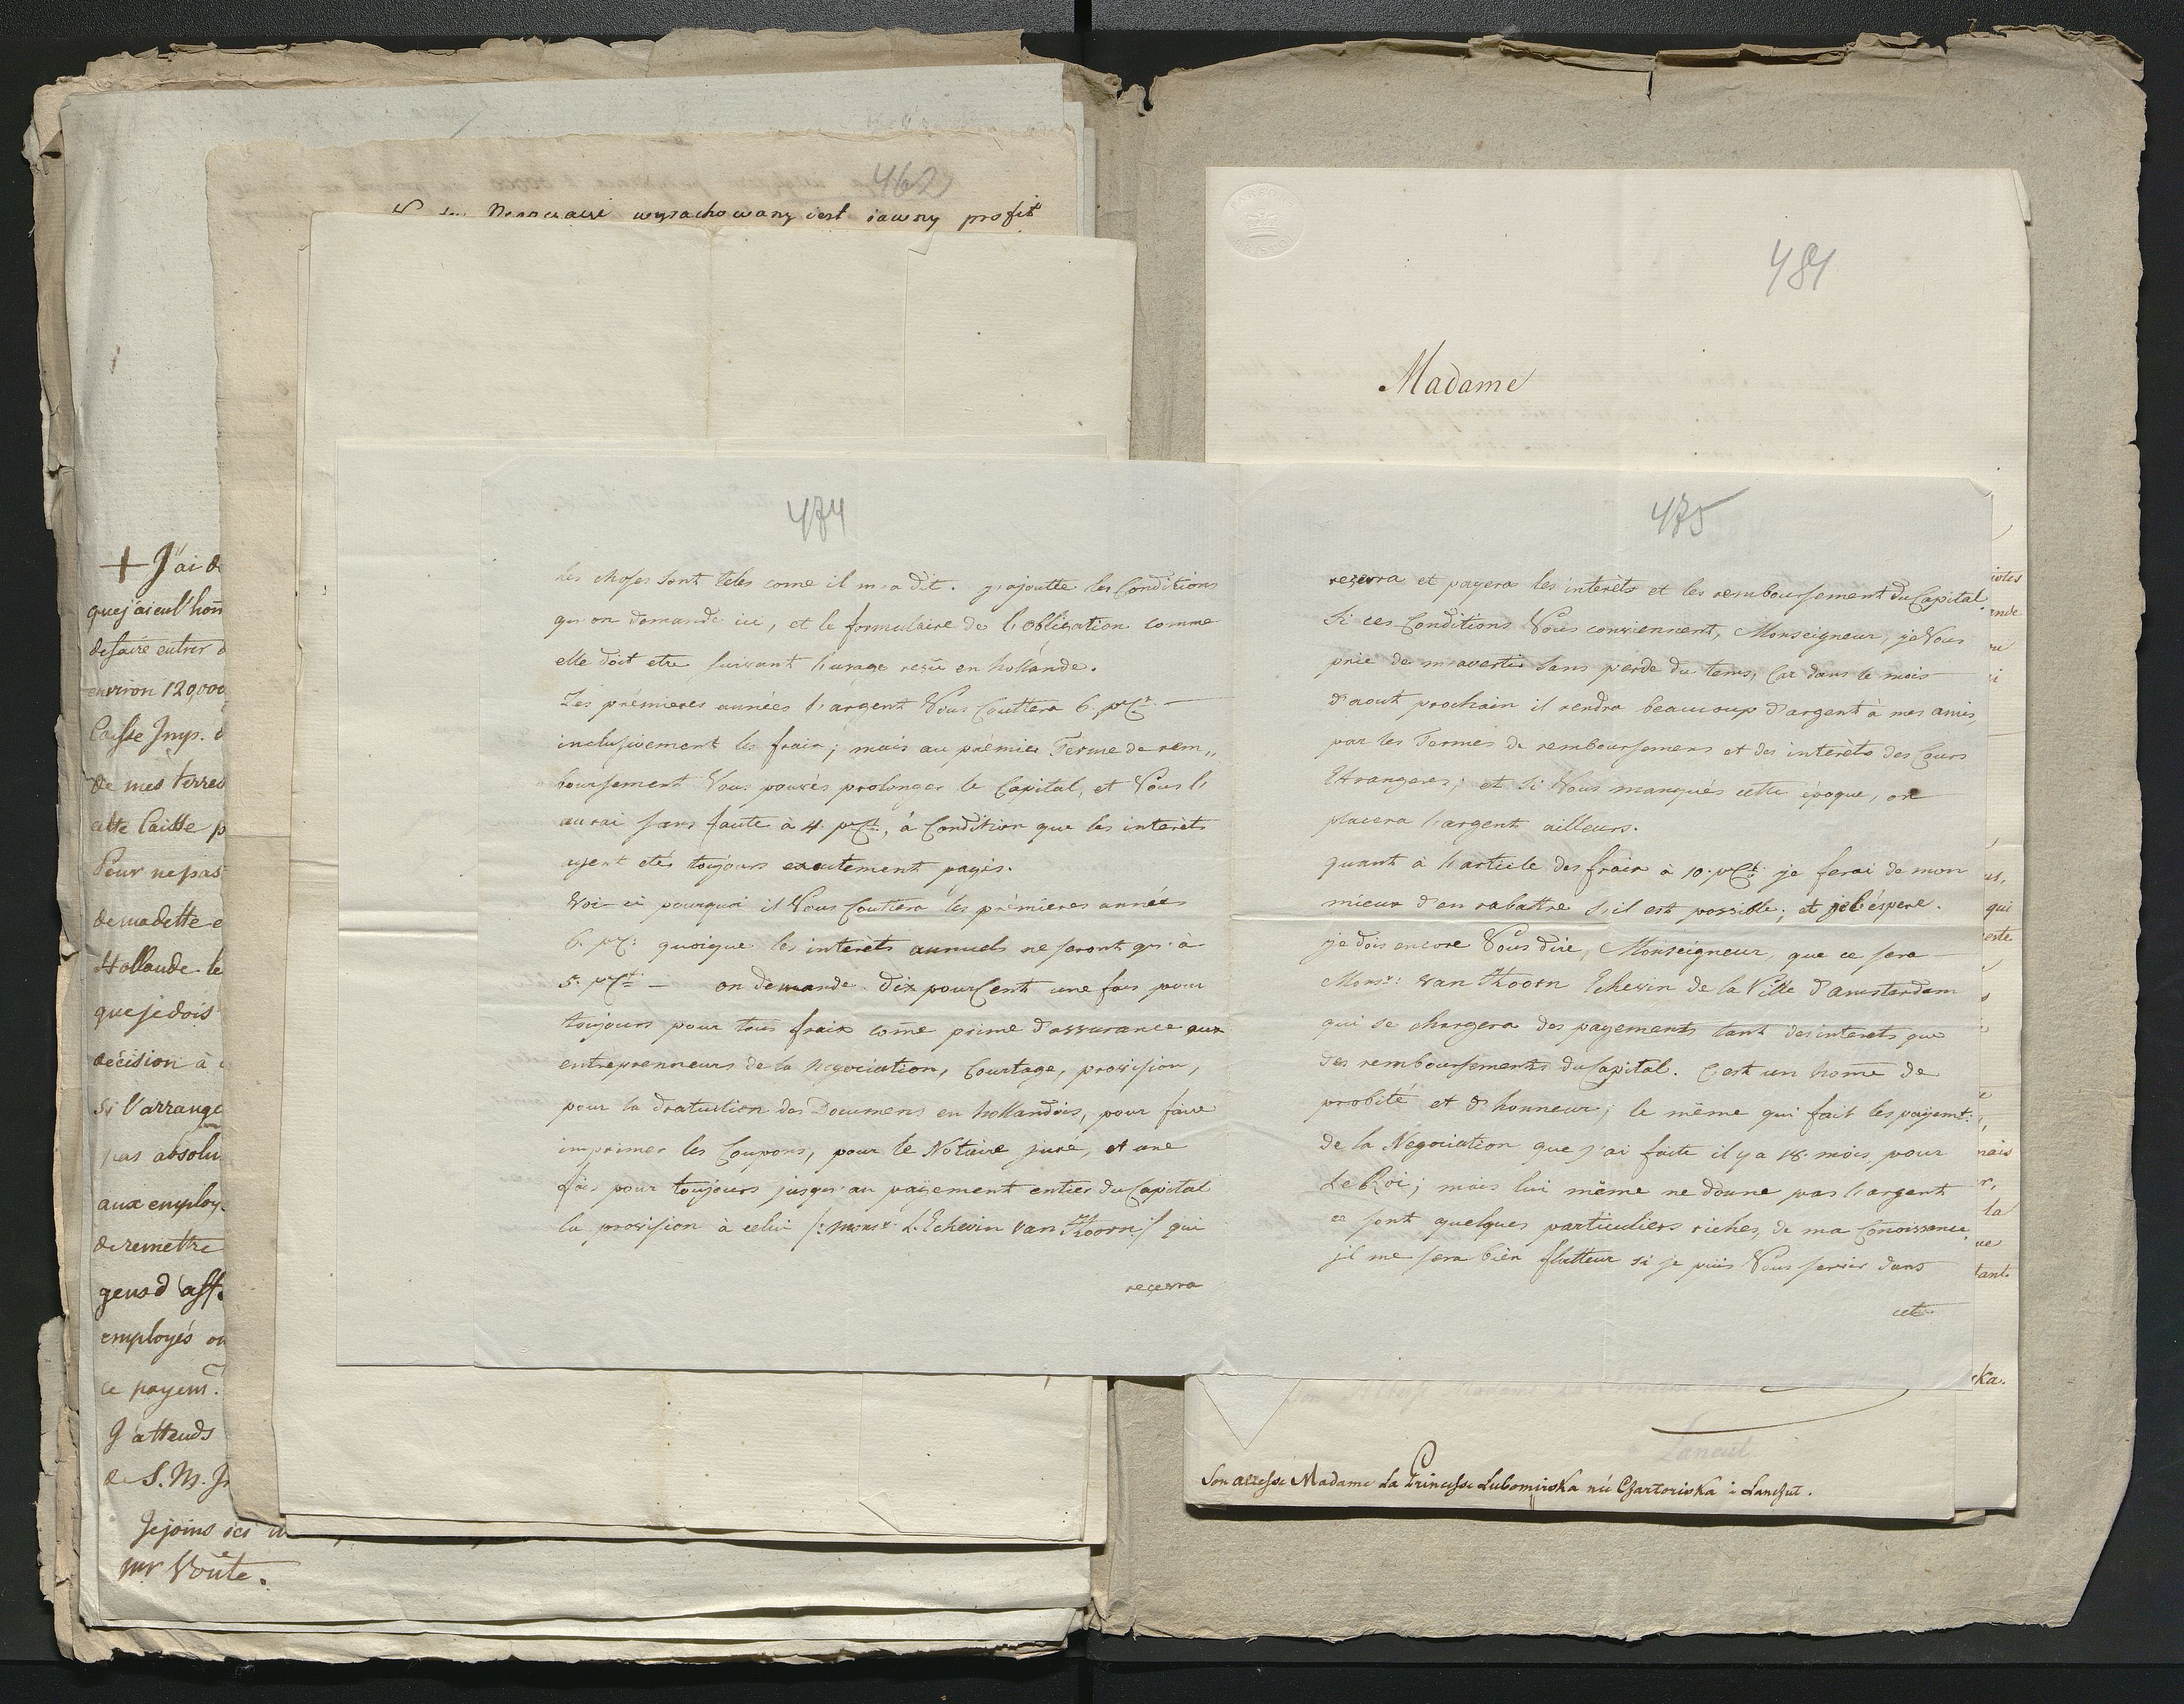 462
wyrachowany iest iawny profit
+ J'ai d
que j'ai eu l'hon
de faire entrer d
environ 120,000
Caisse Imp. d
de mes terres
cette Caisse p
Pour ne pas
de ma dette e
Hollande le
que je dois
decision à
si l'arrange
pas absolu
aux employ
de remettre
gens d'aff.
employés ou
ce payem.
J'attends
de S. M. J
Je joins ici u
Mr Voûte.
474
les choses sont teles come il m'a dit. j'ajoutte les Conditions
qu'on demande ici, et le formulaire de l'obligation comme
elle doit etre suivant l'usage reçû en hollande.
Les prémieres années l'argent Vous Couttera 6. prCt. —
inclusivement les frais; mais au prémier Terme de rem„
boursement Vous pouvés prolonger le Capital, et Vous l'
aurai sans faute à 4. prCt:, à Condition que les interêts
ayent etés toujours exactement payés.
Voi-ci pourquoi il Vous Couttera les prémieres années
6. prC: quoique les interêts annuels ne seront qu'à
5. prCt: — on demande dix pourCent une fois pour
toujours pour tous fraix come prime d'assurance aux
entreprenneurs de la Negociation, Courtage, provision,
pour la dratuction des Documens en hollandois, pour faire
imprimer les Coupons, pour le Notaire juré, et une
fois pour toujours jusqu'au payement entier du Capital
la provision à celui /: Monsr. L'Echevin Van Thoorn :/ qui
reçevra
475
reçevra et payera les interêts et les remboursement du Capital.
Si ces Conditions Vous conviennent, Monseigneur, je Vous
prie de m'avertir sans perde du tems, Car dans le mois
d'aout prochain il rendra beaucoup d'argent à mes amis,
par les Termes de remboursemens et des interêts des Cours
Etrangeres; et si Vous manqués cette époque, on
placera l'argent ailleurs.
quant à l'article des fraix à 10. prCt: je ferai de mon
mieux d'en rabattre s'il est possible; et je l'éspere.
je dois encore Vous dire, Monseigneur, que ce sera —
Monsr: van Thoorn Echevin de la Ville d'amsterdam
qui se chargera des payements tant des interets que
des remboursements du Capital. C'est un home de
probité et d'honneur; le même qui fait les payemt:
de la Negociation que j'ai faite il y a 18. mois pour
Le Roi; mais lui même ne donne pas l'argent
ce sont quelques particuliers riches, de ma Conoissance,
jl me sera bièn flatteur si je puis Vous servir dans
cet
481
Madame
qui
este
mais
la
tant
ka.
Lancut
Son altesse Madame La Princesse Lubomirska né Czartoriska à Lanzut.